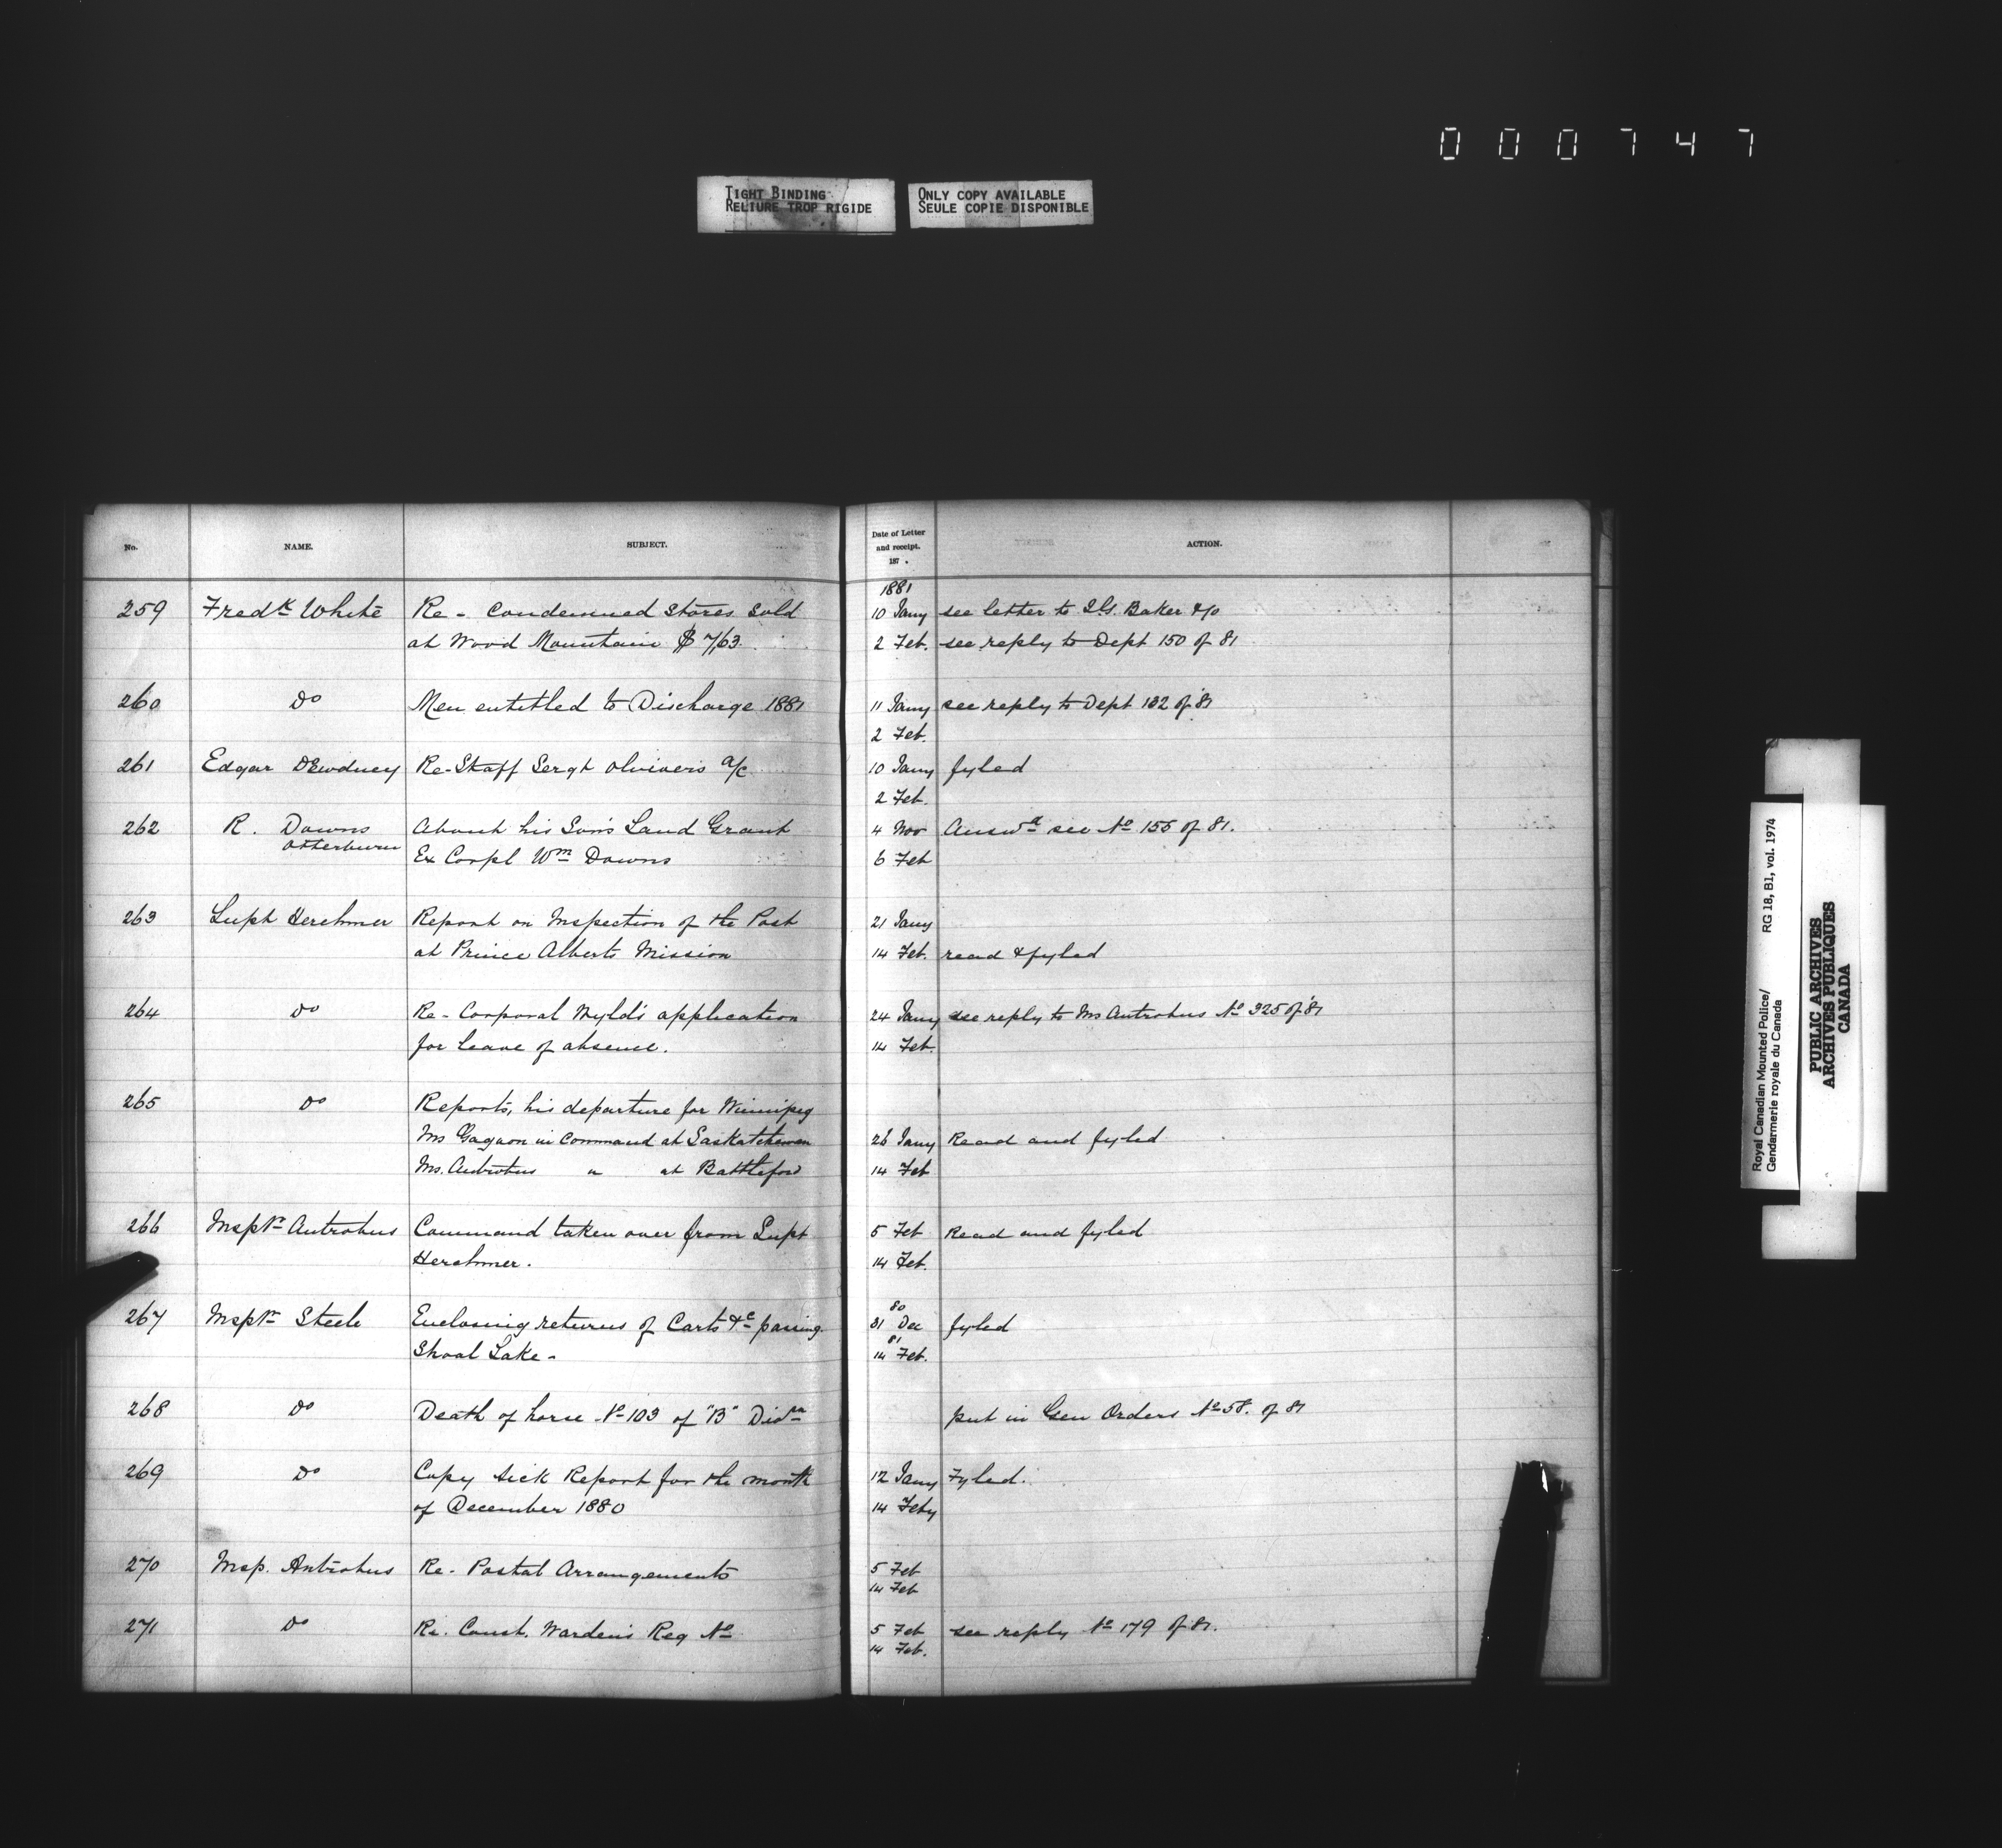 000747
TIGHT BINDING
RELIURE TROP RIGIDE
ONLY COPY AVAILABLE
SEULE COPIE DISPONIBLE
No. NAME. SUBJECT. Date of Letter and receipt. 187 . ACTION.
1881
259 Fredk White Re - Condemned Stores sold 10 Jany see letter to I.G. Baker &Co
at Wood Mountain $ 7/63. 2 Feb. see reply to Dept 150 of 81
260 Do Men entitled to Discharge 1881 11 Jany see reply to Dept 132 of 81
2 Feb.
261 Edgar Dewdney Re-Staff Sergt Olivier's a/c 10 Jany fyled
2 Feb.
262 R. Downs About his Son's Land Grant 4 Nov Answd see No 155 of 81.
Otterburn Ex Corpl Wm Downs 6 Feb
263 Supt Herchmer Report on Inspection of the Post 21 Jany
at Prince Alberts Mission 14 Feb. read & fyled
264 Do Re - Corporal Wyld's application 24 Jany see reply to Ins Antrobus No 325 of 81
for leave of absence. 14 Feb.
265 Do Reports, his departure for Winnipeg
Ins Gagnon in command at Saskatchewan 26 Jany Read and fyled
Ins. Antrobus " at Battleford 14 Feb
266 Inspr Antrobus Command taken over from Supt 5 Feb Read and fyled
Herchmer. 14 Feb.
80
267 Inspr Steele Enclosing returns of Carts &c passing 31 Dec fyled
81
Shoal Lake - 14 Feb.
268 Do Death of horse No 103 of "B" Divn put in Gen Orders No 58. of 81
269 Do Copy Sick Report for the month 12 Jany Fyled.
of December 1880 14 Feby
270 Insp. Antrobus Re - Postal Arrangements 5 Feb
14 Feb
271 Do Re. Const. Warden's Reg No 5 Feb see reply No 179 of 81.
14 Feb.
Royal Canadian Mounted Police/ RG 18, B1, vol. 1974
Gendarmerie royale du Canada
PUBLIC ARCHIVES
ARCHIVES PUBLIQUES
CANADA